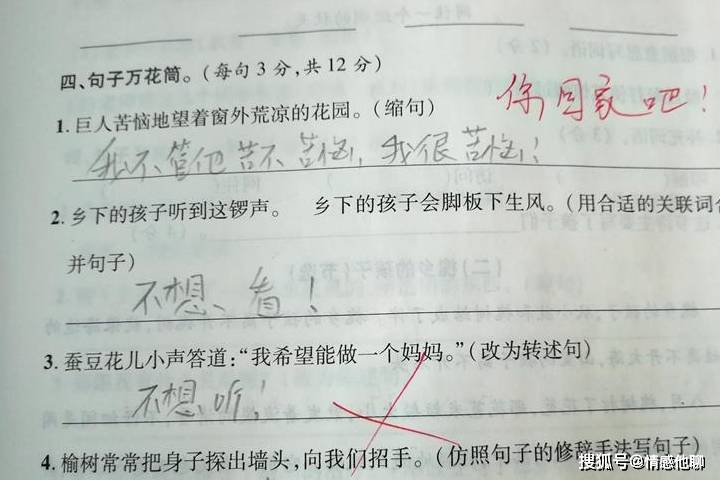 四、句子万花筒。(每句3分,共12分)
你回家吧!
1.巨人苦恼地望着窗外荒凉的花园。(缩句)
我不管他苦不苦恼,我很苦恼!
2.乡下的孩子听到这锣声。 乡下的孩子会脚板下生风。(用合适的关联词合
并句子)
不想、看!
3.蚕豆花儿小声答道:“我希望能做一个妈妈。”(改为转述句)
不想听!
4.榆树常常把身子探出墙头,向我们招手。(仿照句子的修辞手法写句子)
搜狐号@情感他聊